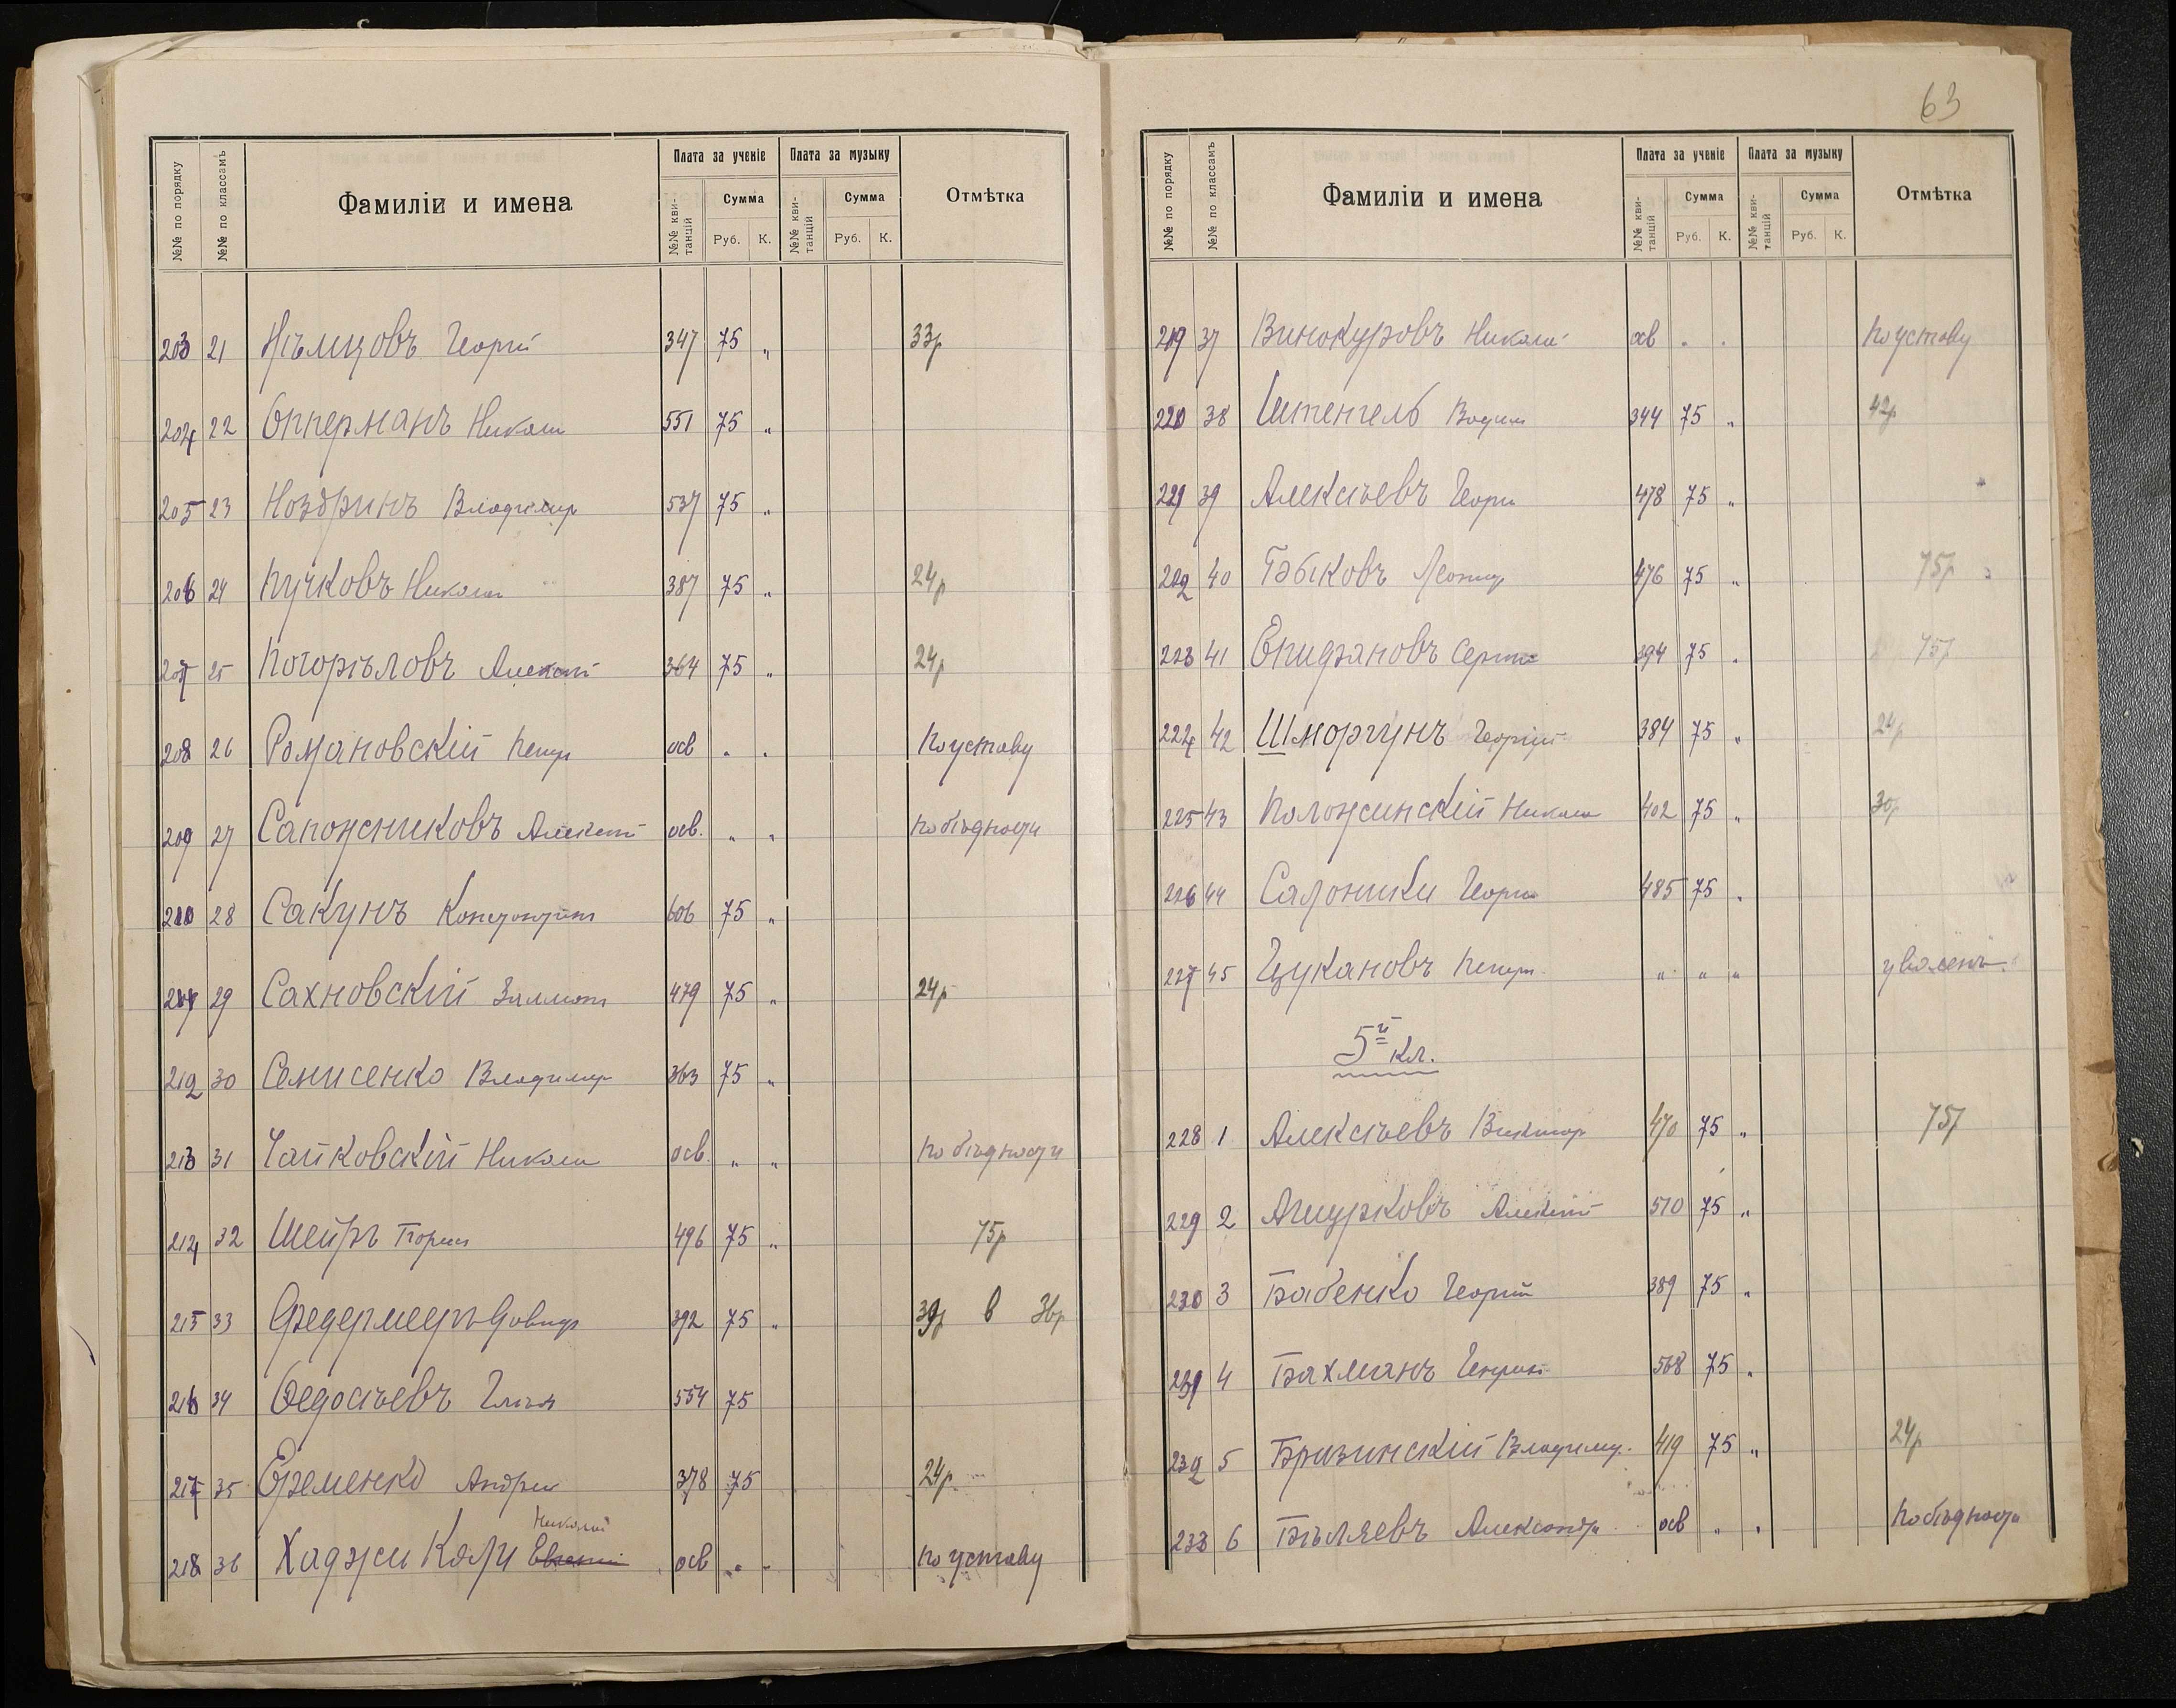 63
№№ по порядку №№ по классамъ Фамиліи и имена Плата за ученіе Плата за музыку Отмѣтка
№№ квитанцій Сумма Руб. К. №№ квитанцій Сумма Руб. К.
203 21 Нѣмцовъ Георгій 347 75 „ 33р
204 22 Опперманъ Николай 551 75 „
205 23 Ноздринъ Владимир 537 75 „
206 24 Пучковъ Николай 387 75 „ 24р
207 25 Погорѣловъ Алексѣй 364 75 „ 24р
208 26 Романовскій Петръ осв „ „ По уставу
209 27 Сапожниковъ Алексѣй осв. „ „ По бѣдности
210 28 Сакунъ Константин 606 75 „
211 29 Сахновскій 479 75 „ 24р
212 30 Семисенко Владимир 363 75 „
213 31 Чайковскій Николай осв. „ „ По бѣдности
214 32 Шейръ Борис 496 75 „ 75р
215 33 Федермеръ Давид 392 75 „ 39р в 36р
216 34 Ѳедосѣевъ 554 75
217 35 Еременко Андрей 378 75 24р
Николай
218 36 Хаджи Коли Евгеній осв „ „ По уставу
№№ по порядку №№ по классамъ Фамиліи и имена Плата за ученіе Плата за музыку Отмѣтка
№№ квитанцій Сумма Руб. К. №№ квитанцій Сумма Руб. К.
219 37 Винокуровъ Николай осв „ „ По уставу
220 38 Штенгель Вадим 344 75 „ 42р
221 39 Алексѣевъ Георгій 478 75 „
222 40 Быковъ Леонид 476 75 „ 75р
223 41 Епифановъ Сергѣй 394 75 „ 75р
224 42 Шморгунъ Георгій 384 75 „ 24р
225 43 Положинскій Николай 402 75 „ 30р
226 44 Салоники Георгій 485 75 „
227 45 Цукановъ Петръ „ „ „ уволенъ
5й кл.
228 1 Алексѣевъ Виктор 470 75 „ 75р
229 2 Агиурковъ Алексѣй 510 75 „
230 3 Бабенко Георгій 389 75 „
231 4 Бахманъ Генрих 568 75 „
232 5 Бразинскій Владимир 419 75 „ 24р
233 6 Бѣляевъ Александр осв „ „ По бѣдности